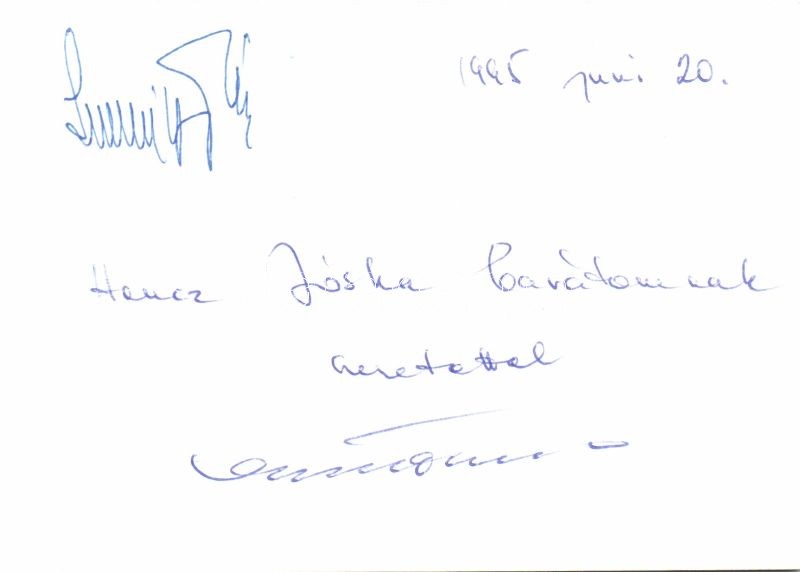 1995 juni 20.
Hencz Jóska barátomnak
szeretettel